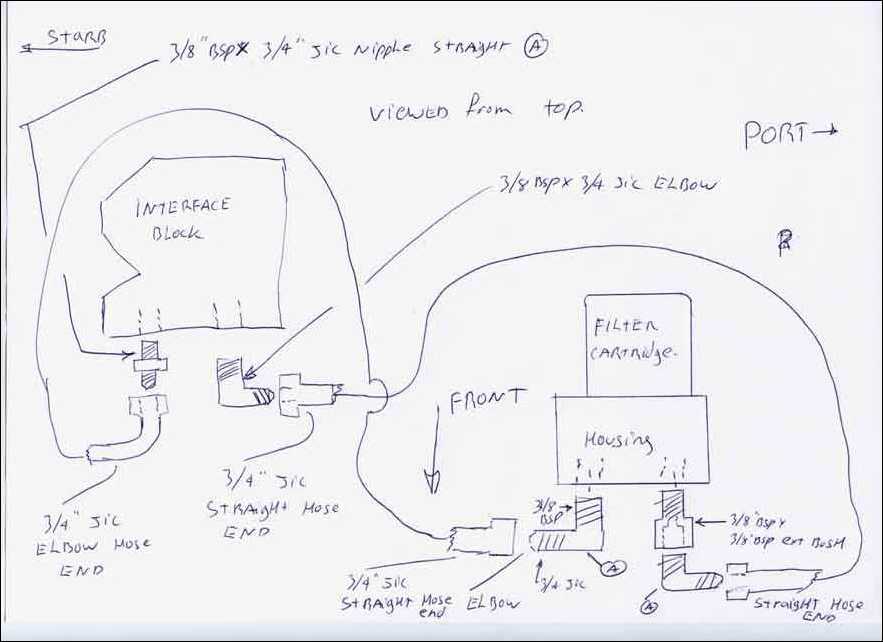 STARB
3/8" BSP X 3/4" Jic Nipple STRAIGHT A
VIEWED from top.
PORT
3/8 BSP X 3/4 Jic ELBOW
INTERFACE
BLOCK
FILTER
CARTRIDGE
FRONT
Housing
3/4" Jic
STRAIGHT HOSE
END
3/4" Jic
ELBOW HOSE
END
3/8
BSP
3/8" BSP X
3/8" BSP ext BUSH
3/4 JIC
A
3/4" JIC
STRAIGHT HOSE
end
ELBOW
A
STRAIGHT HOSE
END